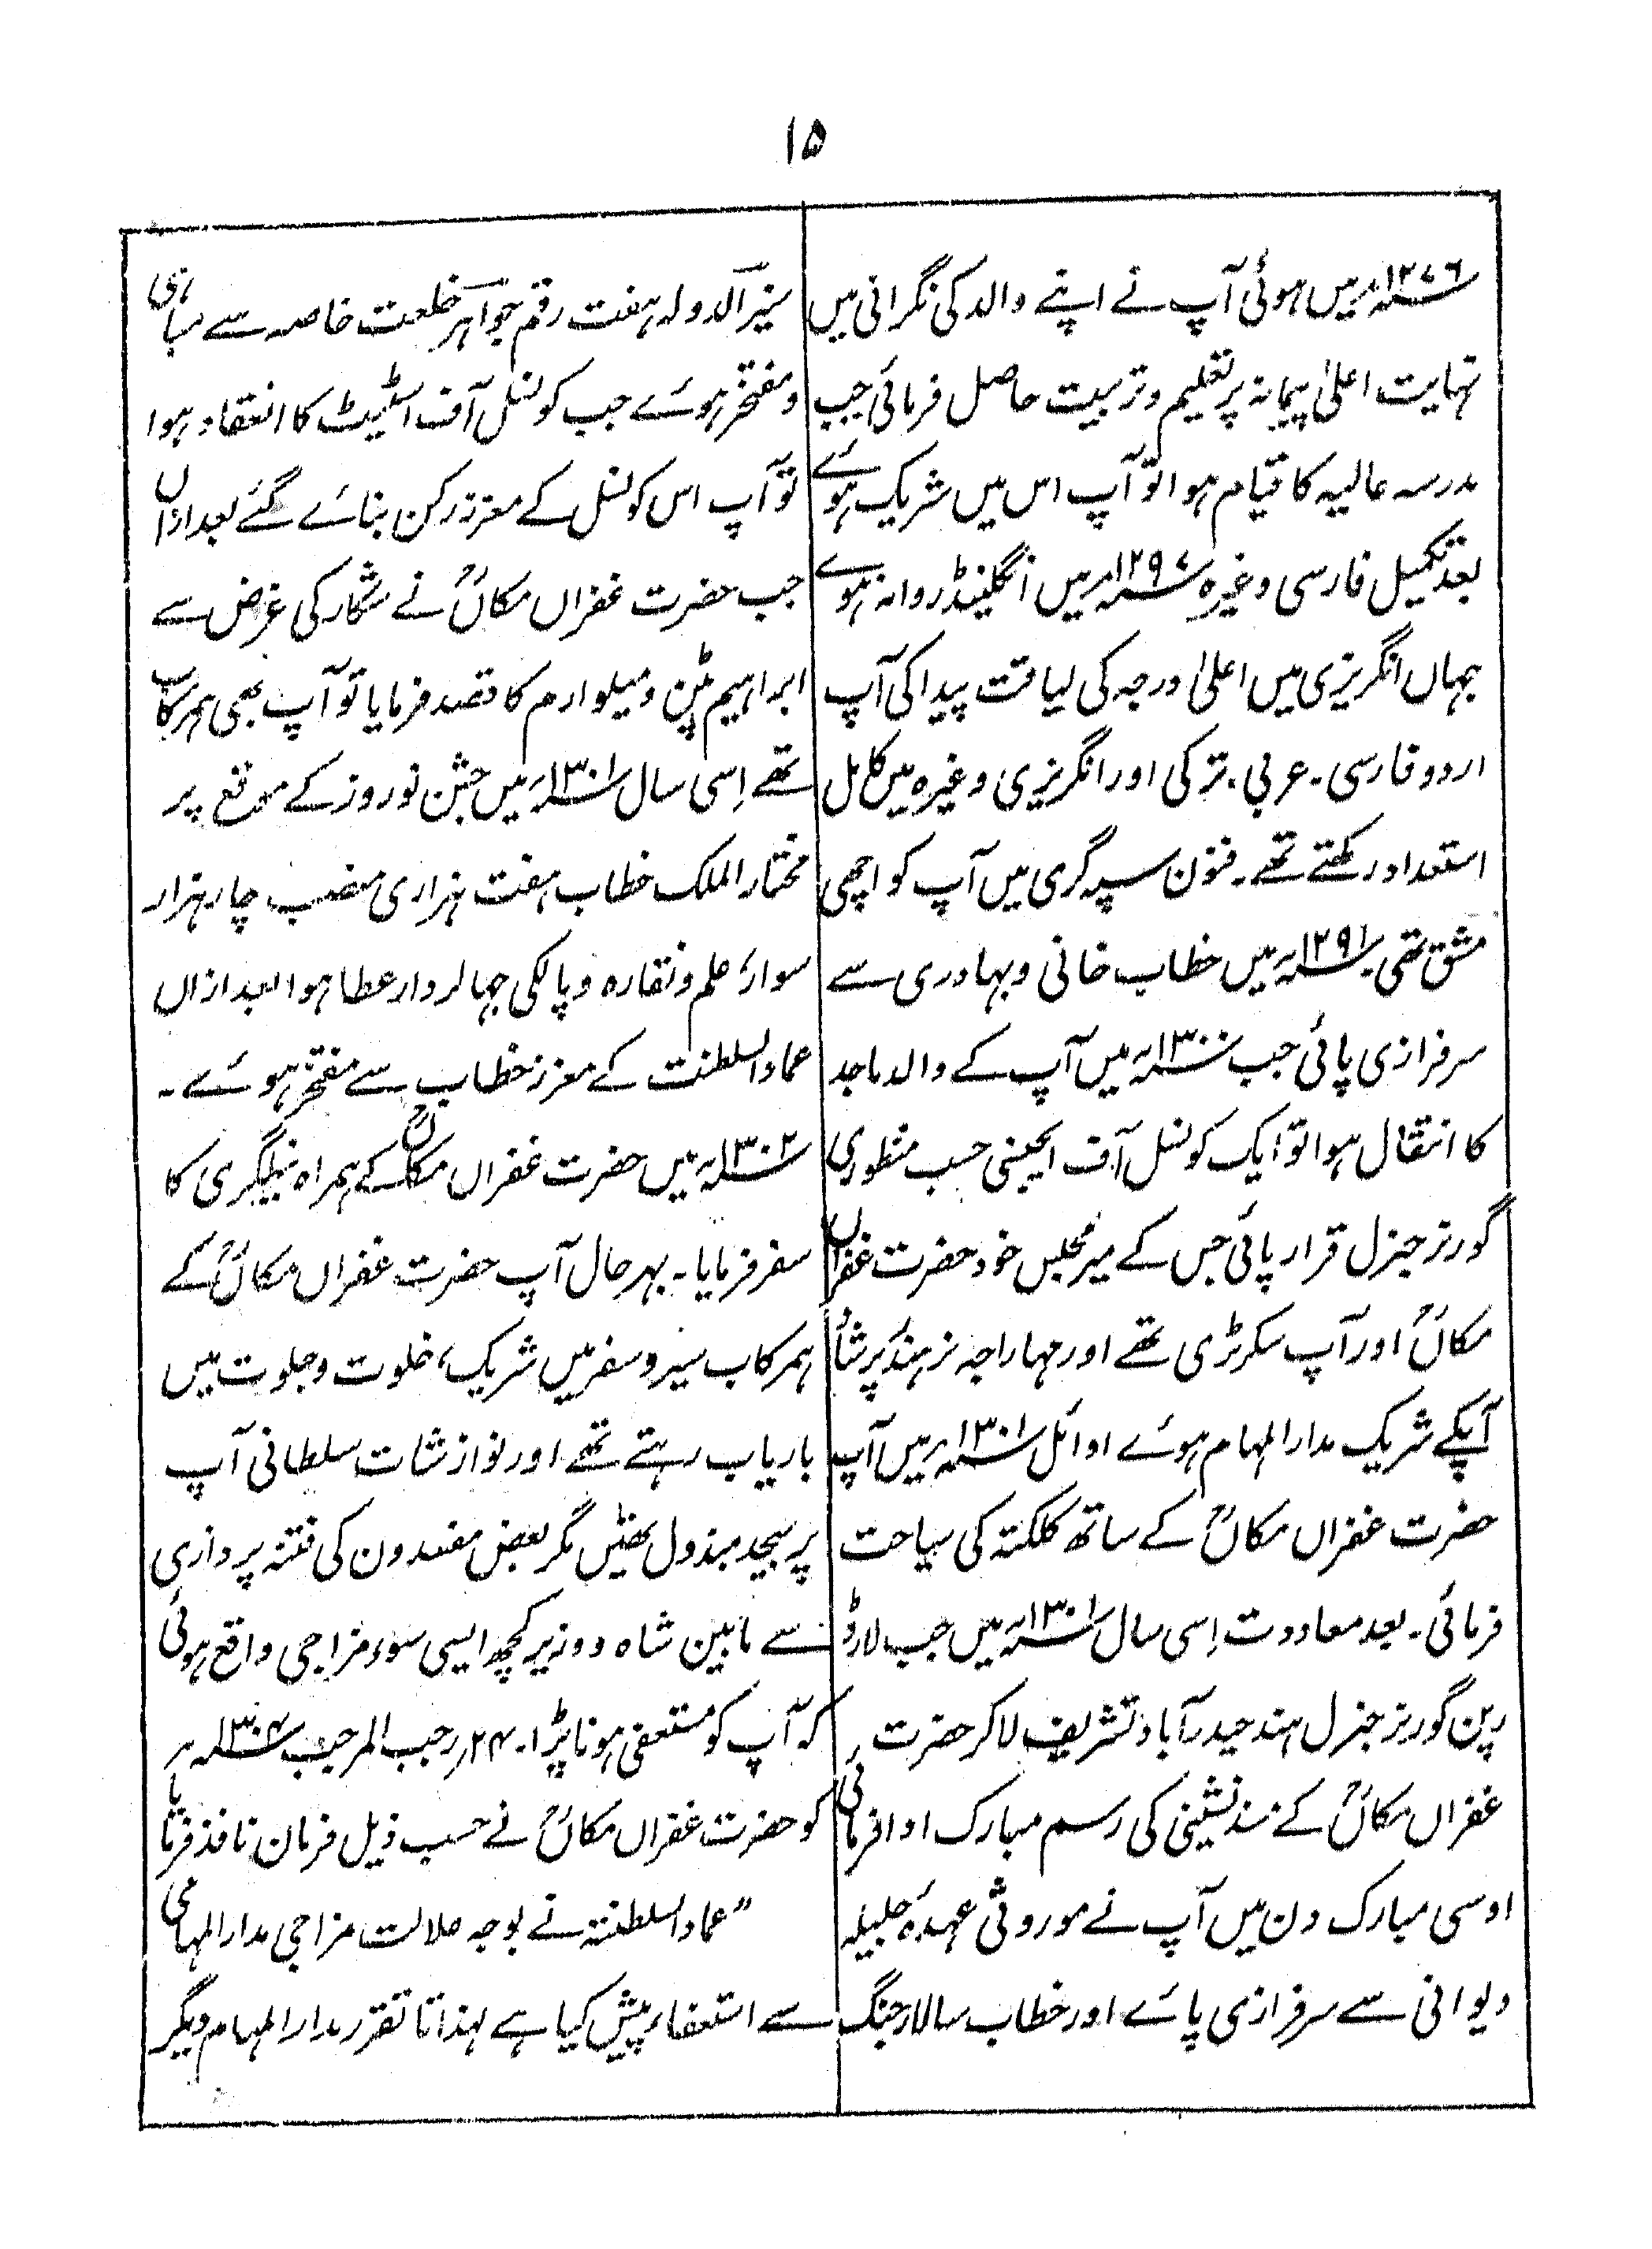 ۱۵
۱۲۷۶ھ میں ہوئی آپ نے اپنے والد کی نگرانی میں
نہایت اعلیٰ پیمانہ پر تعلیم و تربیت حاصل فرمائی جب
مدرسہ عالیہ کا قیام ہوا تو آپ اس میں شریک ہوئے
بعد تکمیل فارسی وغیرہ ۱۲۹۷ھ میں انگلینڈ روانہ ہوے
جہاں انگریزی میں اعلیٰ درجہ کی لیاقت پیدا کی آپ
اردو فارسی۔ عربی۔ ترکی اور انگریزی وغیرہ میں کامل
استعداد رکھتے تھے۔ فنون سپہ گری میں آپ کو اچھی
مشق تھی۔ ۱۲۹۱ھ میں خطاب خانی و بہادری سے
سرفرازی پائی جب ۱۳۰۰ھ میں آپ کے والد ماجد
کا انتقال ہوا تو ایک کونسل آف ایجینسی حسب منظوری
گورنر جنرل قرار پائی جس کے میر مجلس خود حضرت غفراں
مکاںؒ اور آپ سکرٹری تھے اور مہاراجہ نرہندر پرشاد
آپکے شریک مدار المہام ہوئے اوائل ۱۳۰۱ھ میں آپ
حضرت غفراں مکاںؒ کے ساتھ کلکتہ کی سیاحت
فرمائی۔ بعد معاودت اِسی سال ۱۳۰۱ھ میں جب لارڈ
رپن گورنر جنرل ہند حیدرآباد تشریف لا کر حضرت
غفراں مکاںؒ کے مسند نشینی کی رسم مبارک ادا فرمائی
اوسی مبارک دن میں آپ نے موروثی عہدۂ جلیلہ
دیوانی سے سرفرازی پائے اور خطاب سالار جنگ
منیر الدولہ ہفت رقم جواہر خلعت خاصہ سے مباہی
و مفتخر ہوئے جب کونسل آف اسٹیٹ کا انعقاد ہوا
تو آپ اس کونسل کے معزز رکن بنائے گئے بعد ازاں
جب حضرت غفراں مکاںؒ نے شکار کی غرض سے
ابراہیم پٹن و میلوارم کا قصد فرمایا تو آپ بھی ہمرکاب
تھے اِسی سال ۱۳۰۱ھ میں جشن نوروز کے موقع پر
مختار الملک خطاب ہفت ہزاری منصب چار ہزار
سوار، علم و نقارہ و پالکی جھالردار عطا ہوا بعد ازاں
عماد السلطنت کے معزز خطاب سے مفتخر ہوئے۔
۱۳۰۲ھ میں حضرت غفراں مکاںؒ کے ہمراہ نیلگری کا
سفر فرمایا۔ بہر حال آپ حضرت غفراں مکاںؒ کے
ہمرکاب سیر و سفر میں شریک، خلوت و جلوت میں
باریاب رہتے تھے اور نوازشات سلطانی آپ
پر بیحد مبذول تھیں مگر بعض مفسدون کی فتنہ پردازی
سے مابین شاہ و وزیر کچھ ایسی سوء مزاجی واقع ہوئی
کہ آپ کو مستعفی ہونا پڑا۔ ۲۴؍ رجب المرجب ۱۳۰۴ھ
کو حضرت غفراں مکاںؒ نے حسب ذیل فرمان نافذ فرمایا
”عماد السلطنۃ نے بوجہ علالت مزاجی مدار المہامی
سے استعفاء پیش کیا ہے لہذا تا تقرر مدار المہام دیگر